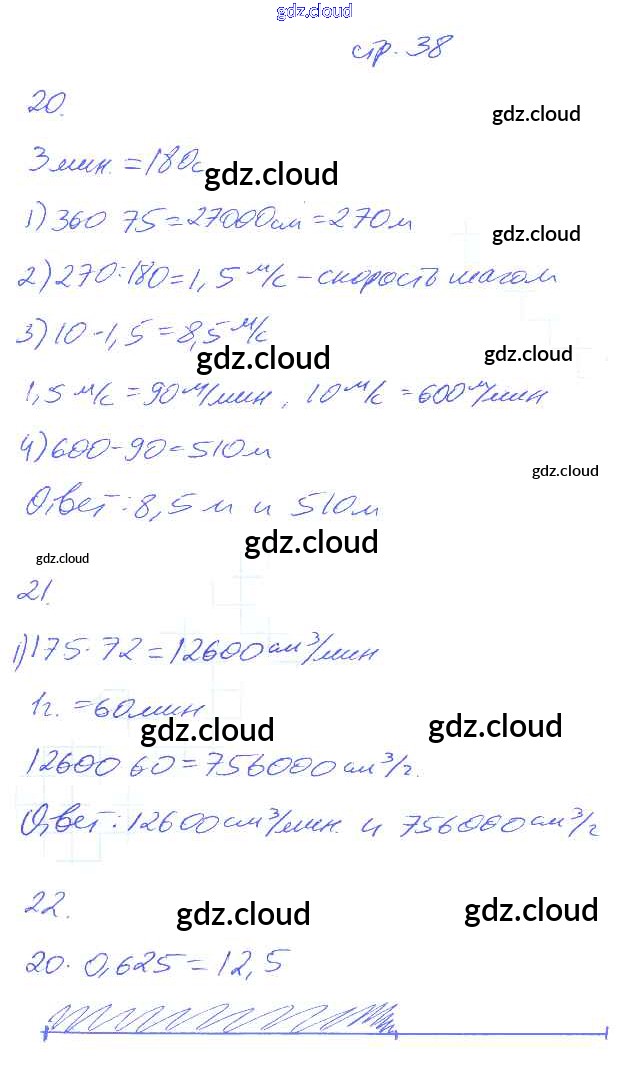 gdz.cloud
стр. 38
20.
gdz.cloud
3 мин. = 180с
gdz.cloud
1) 360 75 = 27000см = 270м
gdz.cloud
2) 270:180 = 1,5 м/с - скорость шагом
3) 10 - 1,5 = 8,5 м/с
gdz.cloud
gdz.cloud
1,5 м/с = 90 м/мин, 10 м/с = 600 м/мин
4) 600 - 90 = 510м
gdz.cloud
Ответ: 8,5 м и 510м
gdz.cloud
gdz.cloud
21.
1) 175 · 72 = 12600 см³/мин
1г. = 60 мин
gdz.cloud
gdz.cloud
12600 60 = 756000 см³/г.
Ответ: 12600 см³/мин. и 756000 см³/г
22.
gdz.cloud
gdz.cloud
20 · 0,625 = 12,5